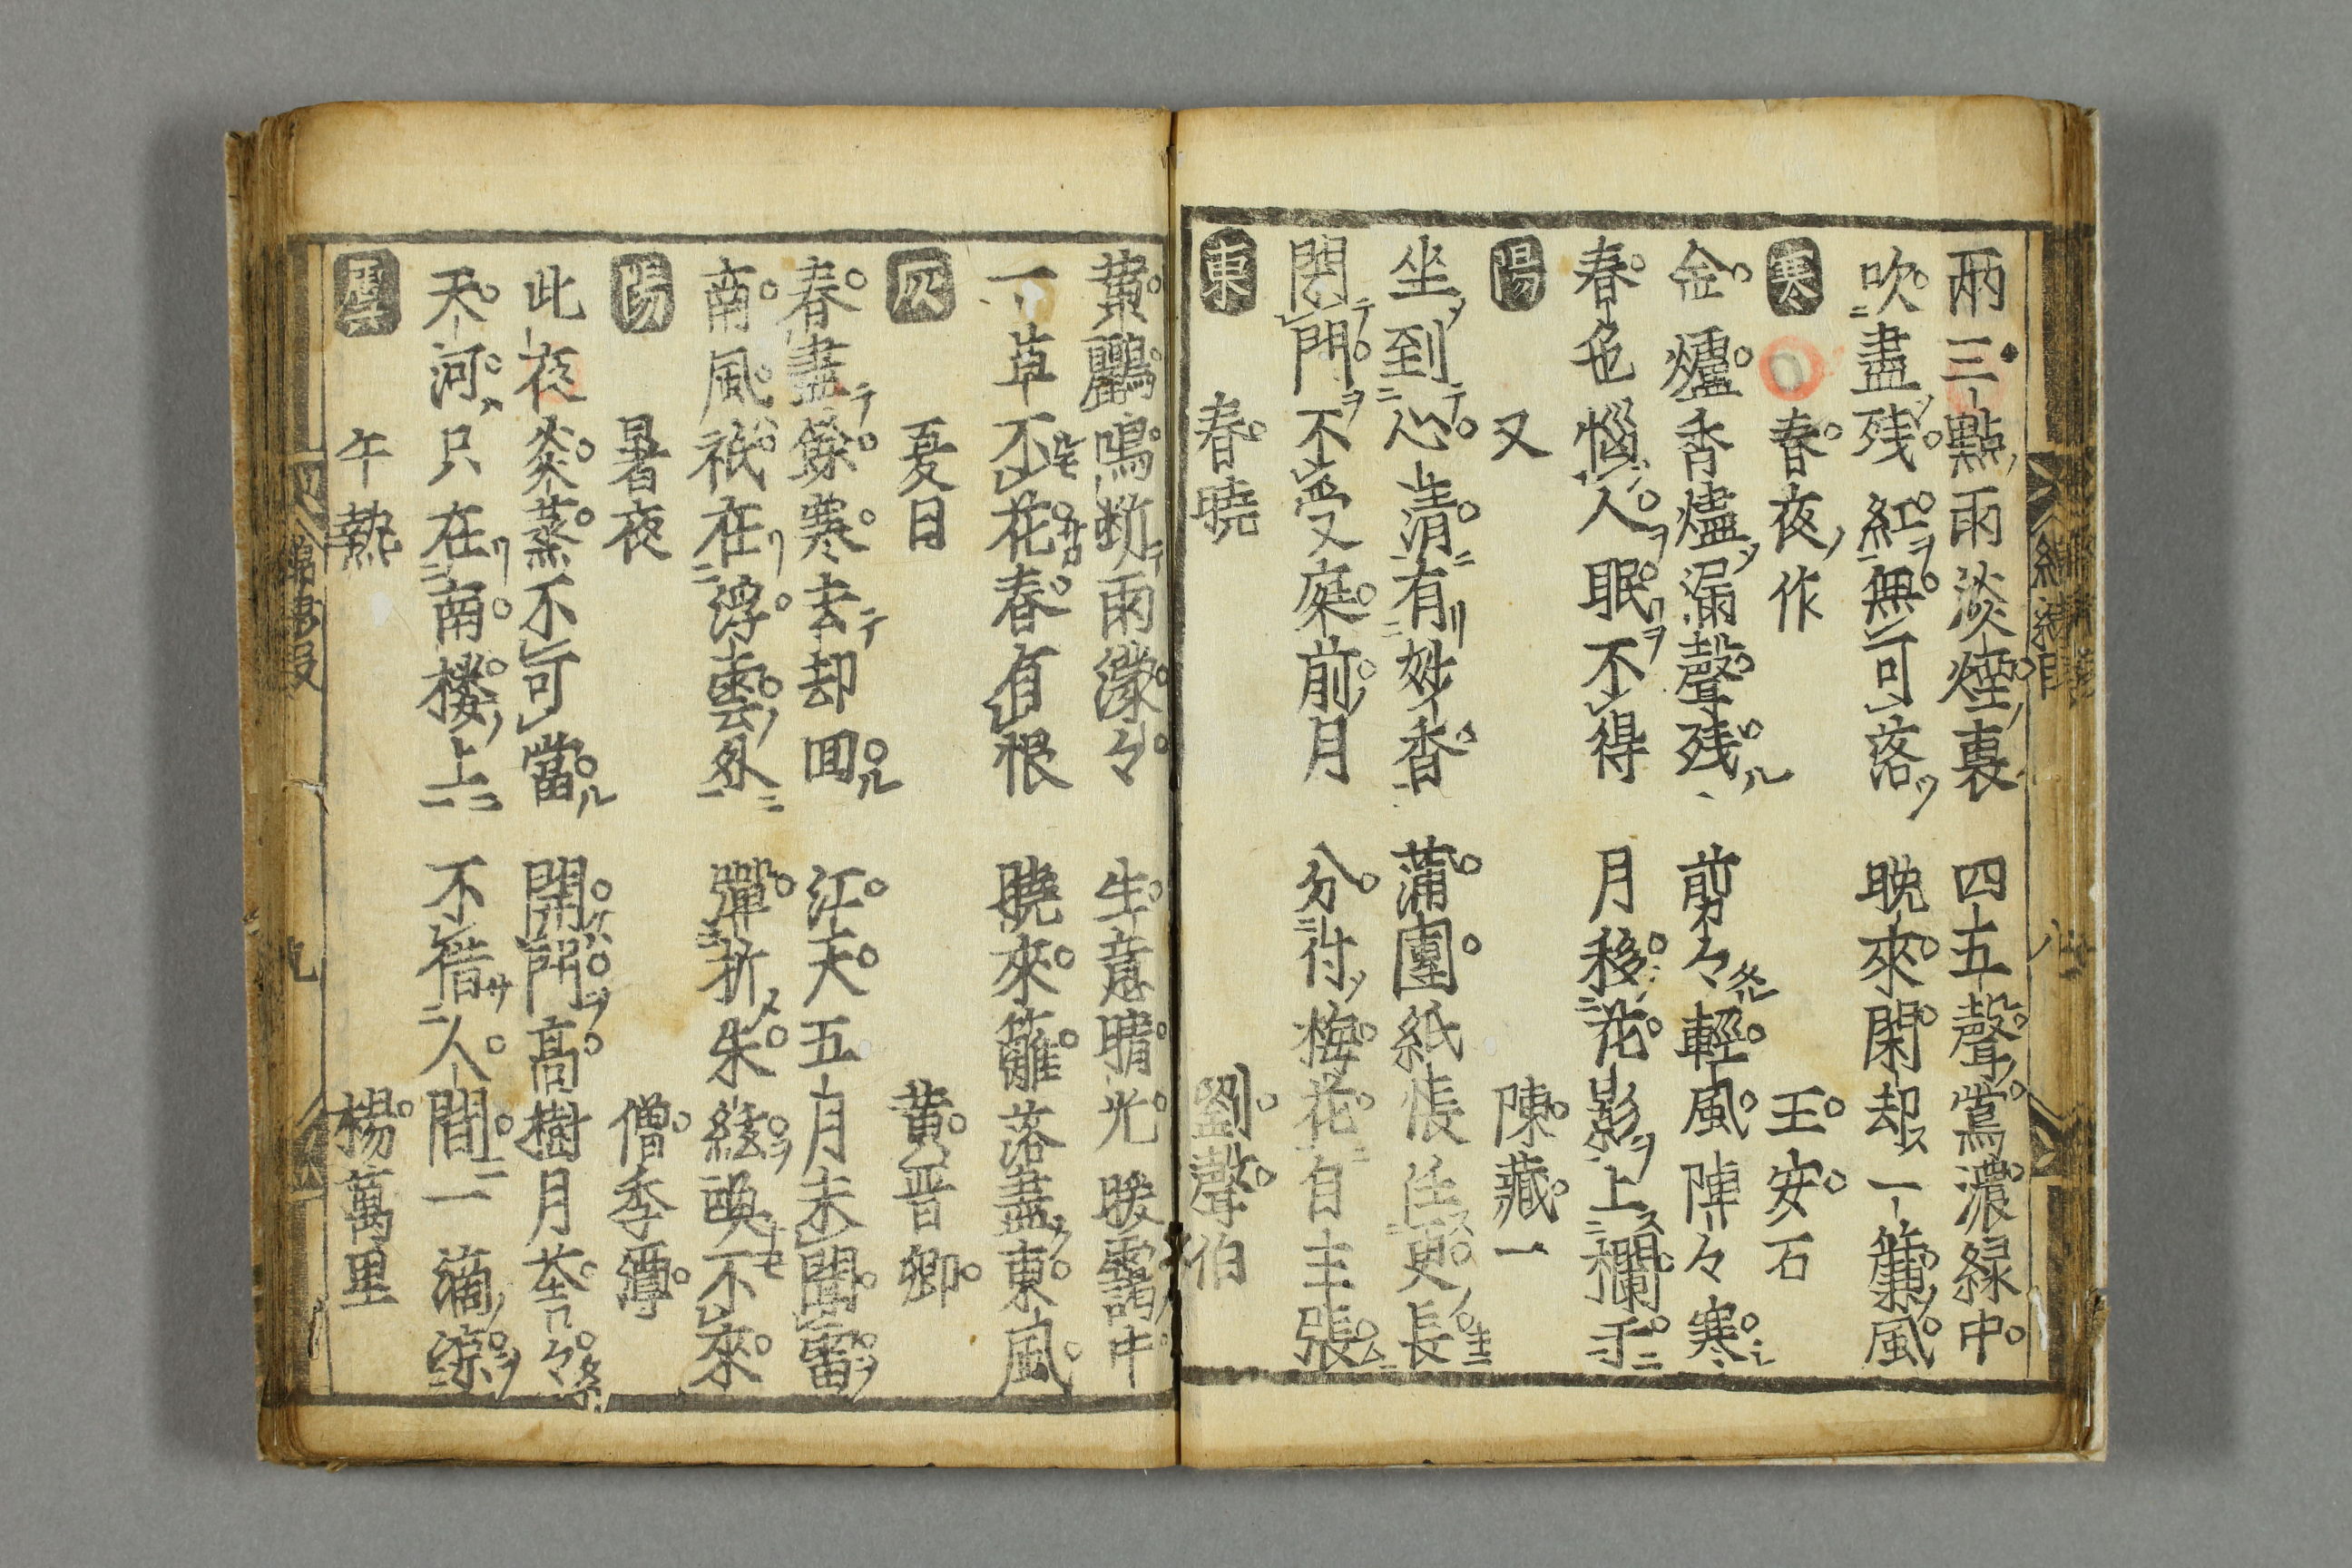 兩三點雨淡煙裏 四五聲鶯濃緑中
吹盡残紅無可落 晩來閑却一簾風
寒 春夜作 王安石
金爐香燼漏聲残 剪々輕風陣々寒
春色惱人眠不得 月移花影上欄干
陽 又 陳藏一
坐到心清有妙香 蒲團紙帳任更長
閉門不受庭前月 分付梅花自主張
東 春曉 劉聲伯
黄鸝鳴斷雨濛々 生意晴光暖靄中
一草不花春有恨 曉來籬落盡東風
灰 夏日 黄晋卿
春盡餘寒去却回 江天五月未聞雷
南風祇在浮雲外 彈折朱絃喚不來
陽 暑夜 僧季潭
此夜炎蒸不可當 開門高樹月蒼々
天河只在南楼上 不借人間一滴涼
午熱 楊萬里